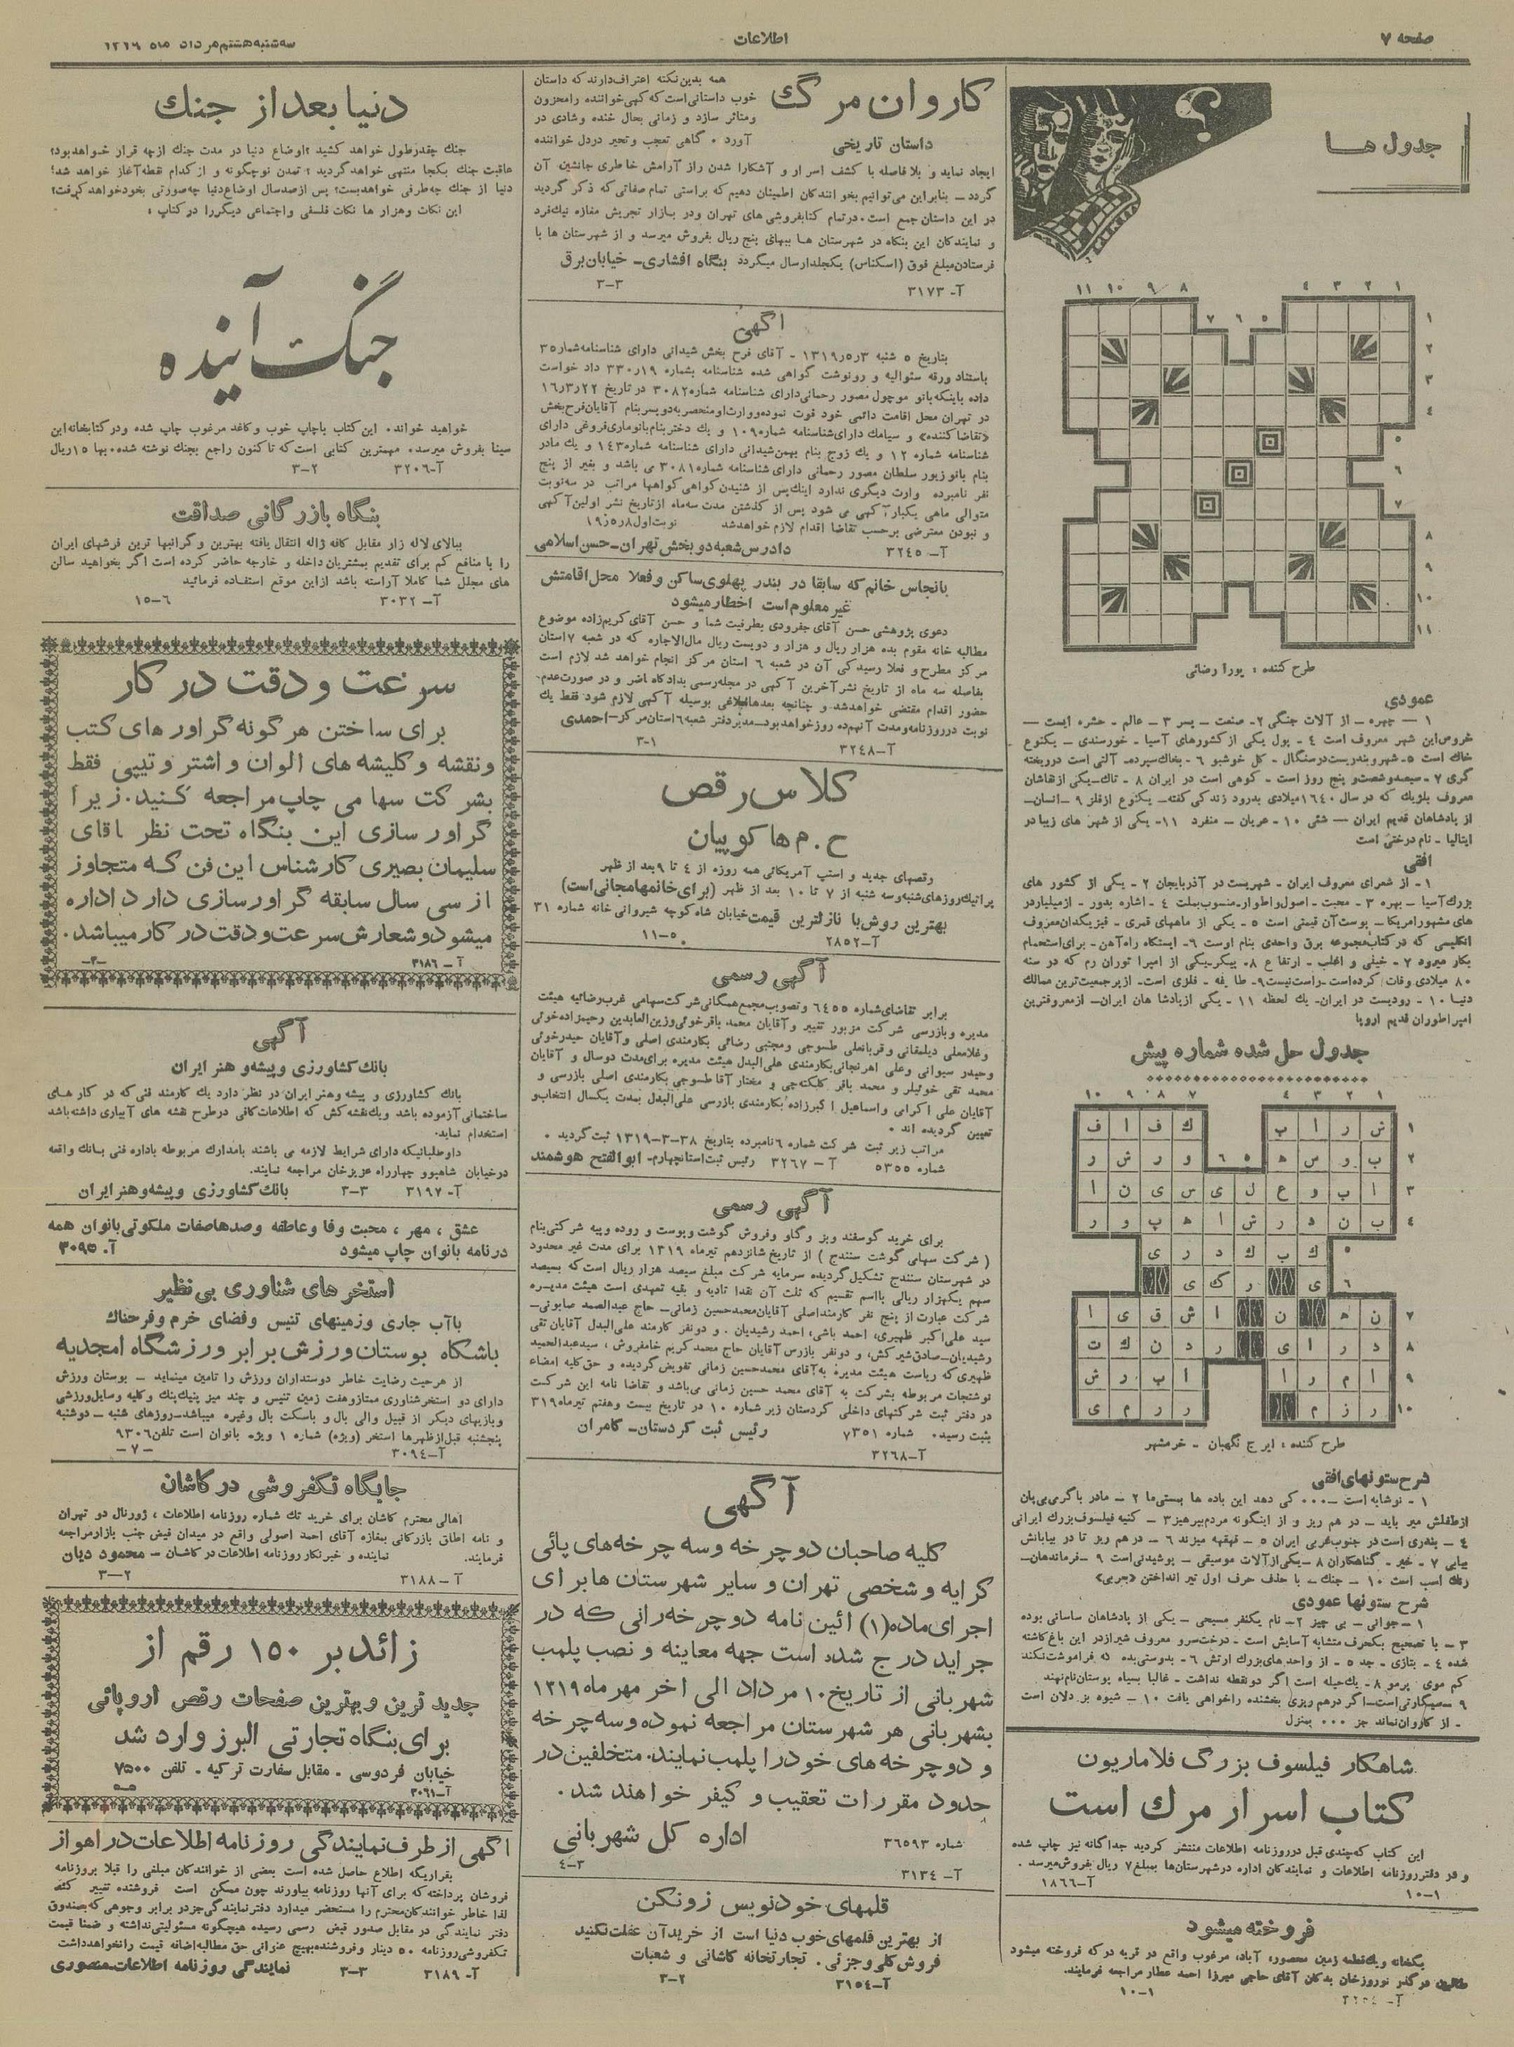 صفحه ۷
اطلاعات
سه شنبه هشتم مرداد ماه ۱۳۱۹
جدول ها
۱ ۲ ۳ ۴ ۵ ۶ ۷ ۸ ۹ ۱۰ ۱۱
طرح کننده : پورا رضائی
عمودی
۱ — چهره – از آلات جنگی ۲- صنعت – پسر ۳ – عالم – حشره ایست –
خروس این شهر معروف است ۴ – پول یکی از کشورهای آسیا – خورسندی – یکنوع
خاک است ۵- شهر و بندریست در سنگال – گل خوشبو ۶ – بخاک سپرده – آلتی است در ریخته
گری ۷ – سیصد و شصت و پنج روز است – کوهی است در ایران ۸ – تاک – یکی از نقاشان
معروف بلژیک که در سال ۱۶۴۰ میلادی بدرود زندگی گفته – یکنوع از فلز ۹ – انسان –
از پادشاهان قدیم ایران — شئی ۱۰ – عریان – منفرد ۱۱- یکی از شهر های زیبا در
ایتالیا – نام درختی است
افقی
۱- از شعرای معروف ایران – شهریست در آذربایجان ۲ – یکی از کشور های
بزرگ آسیا – بهره ۳ – محبت – اصول و اطوار – منسوب بملت ۴ – اشاره بدور – از میلیاردر
های مشهور امریکا – پوست آن قیمتی است ۵ – یکی از ماههای قمری – فیزیکدان معروف
انگلیسی که در کتاب مجموعه برق واحدی بنام اوست ۶ – ایستگاه راه آهن – برای استحمام
بکار میرود ۷ – خیلی و اغلب – ارتفاع ۸ – پیکر – یکی از امپراتوران رم که در سنه
۸۰ میلادی وفات کرده است – راست نیست ۹ – طایفه – فلزی است – از پرجمعیت ترین ممالک
دنیا ۱۰ – رودیست در ایران – یک لحظه ۱۱ – یکی از پادشاهان ایران – از معروفترین
امپراطوران قدیم اروپا
جدول حل شده شماره پیش
طرح کننده : ایرج نگهبان – خرمشهر
شرح ستونهای افقی
۱ – نوشابه است — ۰۰۰ کی دهد این باده ها بستی ما ۲ – مادر با گرمی بی پان
از طفلش میر باید – در هم ریز و از اینگونه مردم بپرهیز ۳ – کنیه فیلسوف بزرگ ایرانی
۴ – بندری است در جنوب غربی ایران ۵ – قهقهه میزند ۶ – در هم ریز تا در بیابانش
بیابی ۷ – خیر – گناهکاران ۸ – یکی از آلات موسیقی – پوشیدنی است ۹ – فرماندهان –
رنگ اسب است ۱۰ – جنگ – با حذف حرف اول تیر انداختن «عربی»
شرح ستونها عمودی
۱ – جوانی – بی چیز ۲ – نام یکنفر مسیحی – یکی از پادشاهان ساسانی بوده
۳ – با تصحیح یکحرف متشابه آسایش است – درخت سرو معروف شیراز در این باغ کاشته
شده ۴ – بتازی – جد ۵ – از واحدهای بزرگ ارتش ۶ – بدوستی بده که فراموشت نکند
کم موی پرمو ۸ – یک حیله است اگر دو نقطه نداشت – غالبا بسیاه پوستان نام نهند
۹ – سیگارتی است – اگر درهم ریزی بخشنده را خواهی یافت ۱۰ – شیوه بز دلان است
– از کاروان نماند جز ۰۰۰ بمنزل
شاهکار فیلسوف بزرگ فلاماریون
کتاب اسرار مرگ است
این کتاب که چندی قبل در روزنامه اطلاعات منتشر گردید جداگانه نیز چاپ شده
و در دفتر روزنامه اطلاعات و نمایندگان اداره در شهرستانها بمبلغ ۷ ریال بفروش میرسد .
آ–۱۸۶۶ ۱۰–۱
فروخته میشود
یکخانه و یک قطعه زمین محصوره آباد، مرغوب واقع در قریه دو که فروخته میشود
در گذر نوروزخان بدکان آقای حاجی میرزا احمد عطار مراجعه فرمایند.
۱۰–۱
کاروان مرگ
داستان تاریخی
همه بدین نکته اعتراف دارند که داستان
خوب داستانی است که گهی خواننده را محزون
و متاثر سازد و زمانی بحال خنده و شادی در
آورد ۰ گاهی تعجب و تحیر در دل خواننده
ایجاد نماید و بلا فاصله با کشف اسرار و آشکارا شدن راز آرامش خاطری جانشین آن
گردد – بنابراین می توانیم بخوانندگان اطمینان دهیم که براستی تمام صفاتی که ذکر گردید
در این داستان جمع است . در تمام کتابفروشی های تهران و در بازار تجریش مغازه نیک فرد
و نمایندگان این بنگاه در شهرستان ها ببهای پنج ریال بفروش میرسد و از شهرستان ها با
فرستادن مبلغ فوق (اسکناس) یکجلد ارسال میگردد بنگاه افشاری – خیابان برق
آ– ۳۱۷۳ ۳–۳
اگهی
بتاریخ ۵ شنبه ۳ر۵ر۱۳۱۹ – آقای فرح بخش شیدائی دارای شناسنامه شماره ۳۵
باستناد ورقه سئوالیه و رونوشت گواهی شده شناسنامه بشماره ۳۳۰ر۱۹ داد خواست
داده باینکه بانو موچول مصور رحمانی دارای شناسنامه شماره ۳۰۸۲ در تاریخ ۲۲ر۳ر۱۶
در تهران محل اقامت دائمی خود فوت نموده و وراث او منحصر به دو پسر بنام آقایان فرح بخش
«تقاضا کننده» و سیامک دارای شناسنامه شماره ۱۰۹ و یک دختر بنام بانو ماری فروغی دارای
شناسنامه شماره ۱۲ و یک زوج بنام بهمن شیدانی دارای شناسنامه شماره ۱۴۳ و یک مادر
بنام بانو زیور سلطان مصور رحمانی دارای شناسنامه شماره ۳۰۸۱ می باشد و بغیر از پنج
نفر نامبرده وارث دیگری ندارد اینک پس از شنیدن گواهی گواهها مراتب در سه نوبت
متوالی ماهی یکبار آگهی می شود پس از گذشتن مدت سه ماه از تاریخ نشر اولین آگهی
و نبودن معترضی برحسب تقاضا اقدام لازم خواهد شد نوبت اول ۸ر۵ر۱۹
آ– ۳۲۴۵ دادرس شعبه دو بخش تهران – حسن اسلامی
بانجاس خانم که سابقا در بندر پهلوی ساکن و فعلا محل اقامتش
غیر معلوم است اخطار میشود
دعوی پژوهشی حسن آقای جفرودی بطرفیت شما و حسن آقای کریم زاده موضوع
مطالبه خانه مقوم بده هزار ریال و هزار و دویست ریال مال الاجاره که در شعبه ۷ استان
مرکز مطرح و فعلا رسیدگی آن در شعبه ۶ استان مرکز انجام خواهد شد لازم است
بفاصله سه ماه از تاریخ نشر آخرین آگهی در مجله رسمی بدادگاه حاضر و در صورت عدم
حضور اقدام مقتضی خواهد شد و چنانچه بعدها ابلاغی بوسیله آگهی لازم شود فقط یک
نوبت در روزنامه و مدت آنهم ده روز خواهد بود – مدیر دفتر شعبه ۶ استان مرکز – احمدی
آ–۳۲۴۸ ۳–۱
کلاس رقص
ح . م هاکوپیان
رقصهای جدید و استپ آمریکائی همه روزه از ۴ تا ۹ بعد از ظهر
پراتیک روزهای شنبه و سه شنبه از ۷ تا ۱۰ بعد از ظهر (برای خانمها مجانی است)
بهترین روش با نازلترین قیمت خیابان شاه کوچه شیروانی خانه شماره ۳۱
آ–۲۸۵۲ ۱۱–۵
آگهی رسمی
برابر تقاضای شماره ۶۴۵۵ و تصویب مجمع همگانی شرکت سهامی غرب رضائیه هیئت
مدیره و بازرسی شرکت مزبور تغییر و آقایان محمد باقر خوئی و زین العابدین رحیم زاده خوئی
و غلامعلی دیلمقانی و قربانعلی طسوجی و مجتبی رضائی بکارمندی اصلی و آقایان حیدر خوئی
و حیدر سیوانی و علی اهرنجانی بکارمندی علی البدل هیئت مدیره برای مدت دو سال و آقایان
محمد تقی خوئیلر و محمد باقر کلکته چی و مختار آقا طسوجی بکارمندی اصلی بازرسی و
آقایان علی اکرامی و اسماعیل اکبرزاده بکارمندی بازرسی علی البدل بمدت یکسال انتخاب و
تعیین گردیده اند ۰
مراتب زیر ثبت شرکت شماره ۶ نامبرده بتاریخ ۲۸–۳–۱۳۱۹ ثبت گردید ۰
شماره ۵۳۵۵ آ – ۳۲۶۷ رئیس ثبت استان چهارم – ابوالفتح هوشمند
آگهی رسمی
برای خرید گوسفند و بز و گاو و فروش گوشت و پوست و روده و پیه شرکتی بنام
( شرکت سهامی گوشت سنندج ) از تاریخ شانزدهم تیر ماه ۱۳۱۹ برای مدت غیر محدود
در شهرستان سنندج تشکیل گردیده سرمایه شرکت مبلغ سیصد هزار ریال است که بسیصد
سهم یکهزار ریالی با اسم تقسیم که ثلث آن نقدا تادیه و بقیه تعهدی است هیئت مدیره
شرکت عبارت از پنج نفر کارمند اصلی آقایان محمد حسین زمانی – حاج عبدالصمد صابونی –
سید علی اکبر ظهیری، احمد باشی، احمد رشیدیان . و دو نفر کارمند علی البدل آقایان تقی
رشیدیان – صادق شیرکش، و دو نفر بازرس آقایان حاج محمد کریم خامفروش ، سید عبدالحمید
ظهیری که ریاست هیئت مدیره به آقای محمد حسین زمانی تفویض گردیده و حق کلیه امضاء
نوشتجات مربوطه بشرکت به آقای محمد حسین زمانی می باشد و تقاضا نامه این شرکت
در دفتر ثبت شرکتهای داخلی کردستان زیر شماره ۱۰ در تاریخ بیست و هفتم تیر ماه ۳۱۹
بثبت رسید . شماره ۷۳۵۱ رئیس ثبت کردستان – کامران
آ–۳۲۶۸
آگهی
کلیه صاحبان دوچرخه و سه چرخه های پائی
کرایه و شخصی تهران و سایر شهرستان ها برای
اجرای ماده (۱) ائین نامه دوچرخه رانی که در
جراید درج شده است جهه معاینه و نصب پلمب
شهربانی از تاریخ ۱۰ مرداد الی اخر مهر ماه ۱۳۱۹
بشهربانی هر شهرستان مراجعه نموده و سه چرخه
و دوچرخه های خود را پلمب نمایند . متخلفین در
حدود مقررات تعقیب و کیفر خواهند شد .
شماره ۳۶۵۹۳ اداره کل شهربانی
آ– ۳۱۳۴ ۴–۳
قلمهای خودنویس زونکن
از بهترین قلمهای خوب دنیا است از خرید آن غفلت نکنید
فروش کلی و جزئی . تجارتخانه کاشانی و شعبات
آ–۳۱۵۴ ۳–۲
دنیا بعد از جنگ
جنگ چقدر طول خواهد کشید ؟ اوضاع دنیا در مدت جنگ از چه قرار خواهد بود؟
عاقبت جنگ بکجا منتهی خواهد گردید ؟ تمدن نو چگونه و از کدام نقطه آغاز خواهد شد؟
دنیا از جنگ چه طرفی خواهد بست؟ پس از صد سال اوضاع دنیا چه صورتی بخود خواهد گرفت؟
این نکات و هزار ها نکات فلسفی و اجتماعی دیگر را در کتاب :
جنگ آینده
خواهید خواند . این کتاب با چاپ خوب و کاغذ مرغوب چاپ شده و در کتابخانه ابن
سینا بفروش میرسد . مهمترین کتابی است که تا کنون راجع بجنگ نوشته شده . بها ۱۵ ریال
آ–۳۲۰۶ ۳–۲
بنگاه بازرگانی صداقت
ببالای لاله زار مقابل کافه ژاله انتقال یافته بهترین و گرانبها ترین فرشهای ایران
را با منافع کم برای تقدیم بمشتریان داخله و خارجه حاضر کرده است اگر بخواهید سالن
های مجلل شما کاملا آراسته باشد از این موقع استفاده فرمائید
آ– ۳۰۳۲ ۱۵–۶
سرعت و دقت در کار
برای ساختن هر گونه گراور های کتب
و نقشه و کلیشه های الوان و اشتر و تیپی فقط
بشرکت سهامی چاپ مراجعه کنید . زیرا
گراور سازی این بنگاه تحت نظر اقای
سلیمان بصیری کارشناس این فن که متجاوز
از سی سال سابقه گراور سازی دارد اداره
میشود و شعارش سرعت و دقت در کار میباشد .
آ – ۳۱۸۶
آگهی
بانک کشاورزی و پیشه و هنر ایران
بانک کشاورزی و پیشه و هنر ایران در نظر دارد یک کارمند فنی که در کار های
ساختمانی آزموده باشد و یک نقشه کش که اطلاعات کافی در طرح نقشه های آبیاری داشته باشد
استخدام نماید.
داوطلبانیکه دارای شرایط لازمه می باشند با مدارک مربوطه باداره فنی بانک واقعه
در خیابان شاهپور چهارراه عزیزخان مراجعه نمایند.
آ– ۳۱۹۷ ۳–۳ بانک کشاورزی و پیشه و هنر ایران
عشق ، مهر ، محبت وفا و عاطفه و صدها صفات ملکوتی بانوان همه
در نامه بانوان چاپ میشود آ– ۳۰۹۵
استخر های شناوری بی نظیر
با آب جاری و زمینهای تنیس و فضای خرم و فرحناک
باشگاه بوستان ورزش برابر ورزشگاه امجدیه
از هر حیث رضایت خاطر دوستداران ورزش را تامین مینماید – بوستان ورزش
دارای دو استخر شناوری ممتاز و هفت زمین تنیس و چند میز پنیک پنک و کلیه وسایل ورزشی
و بازیهای دیگر از قبیل والی بال و باسکت بال و غیره میباشد – روزهای شنبه – دوشنبه
پنجشنبه قبل از ظهرها استخر (ویژه) شماره ۱ ویژه بانوان است تلفن ۹۳۰۶
آ–۳۰۹۴ –۷–
جایگاه تکفروشی در کاشان
اهالی محترم کاشان برای خرید تک شماره روزنامه اطلاعات ، ژورنال دو تهران
و نامه اطاق بازرگانی بمغازه آقای احمد اصولی واقع در میدان فیض جنب بازار مراجعه
فرمایند. نماینده و خبرنگار روزنامه اطلاعات در کاشان – محمود دیان
آ –۳۱۸۸ ۳–۲
زائد بر ۱۵۰ رقم از
جدید ترین و بهترین صفحات رقص اروپائی
برای بنگاه تجارتی البرز وارد شد
خیابان فردوسی . مقابل سفارت ترکیه . تلفن ۷۵۰۰
آ–۳۰۶۱ ۵–۵
اگهی از طرف نمایندگی روزنامه اطلاعات در اهواز
بقراریکه اطلاع حاصل شده است بعضی از خوانندگان مبلغی را قبلا بروزنامه
فروشان پرداخته که برای آنها روزنامه بیاورند چون ممکن است فروشنده تغییر کند
لذا خاطر خوانندگان محترم را مستحضر میدارد دفتر نمایندگی جز در برابر وجوهی که بصندوق
دفتر نمایندگی در مقابل صدور قبض رسمی رسیده هیچگونه مسئولیتی نداشته و ضمنا قیمت
تکفروشی روزنامه ۵۰ دینار و فروشنده بهیچ عنوانی حق مطالبه اضافه قیمت را نخواهد داشت
آ– ۳۱۸۹ ۳–۳ نمایندگی روزنامه اطلاعات – منصوری